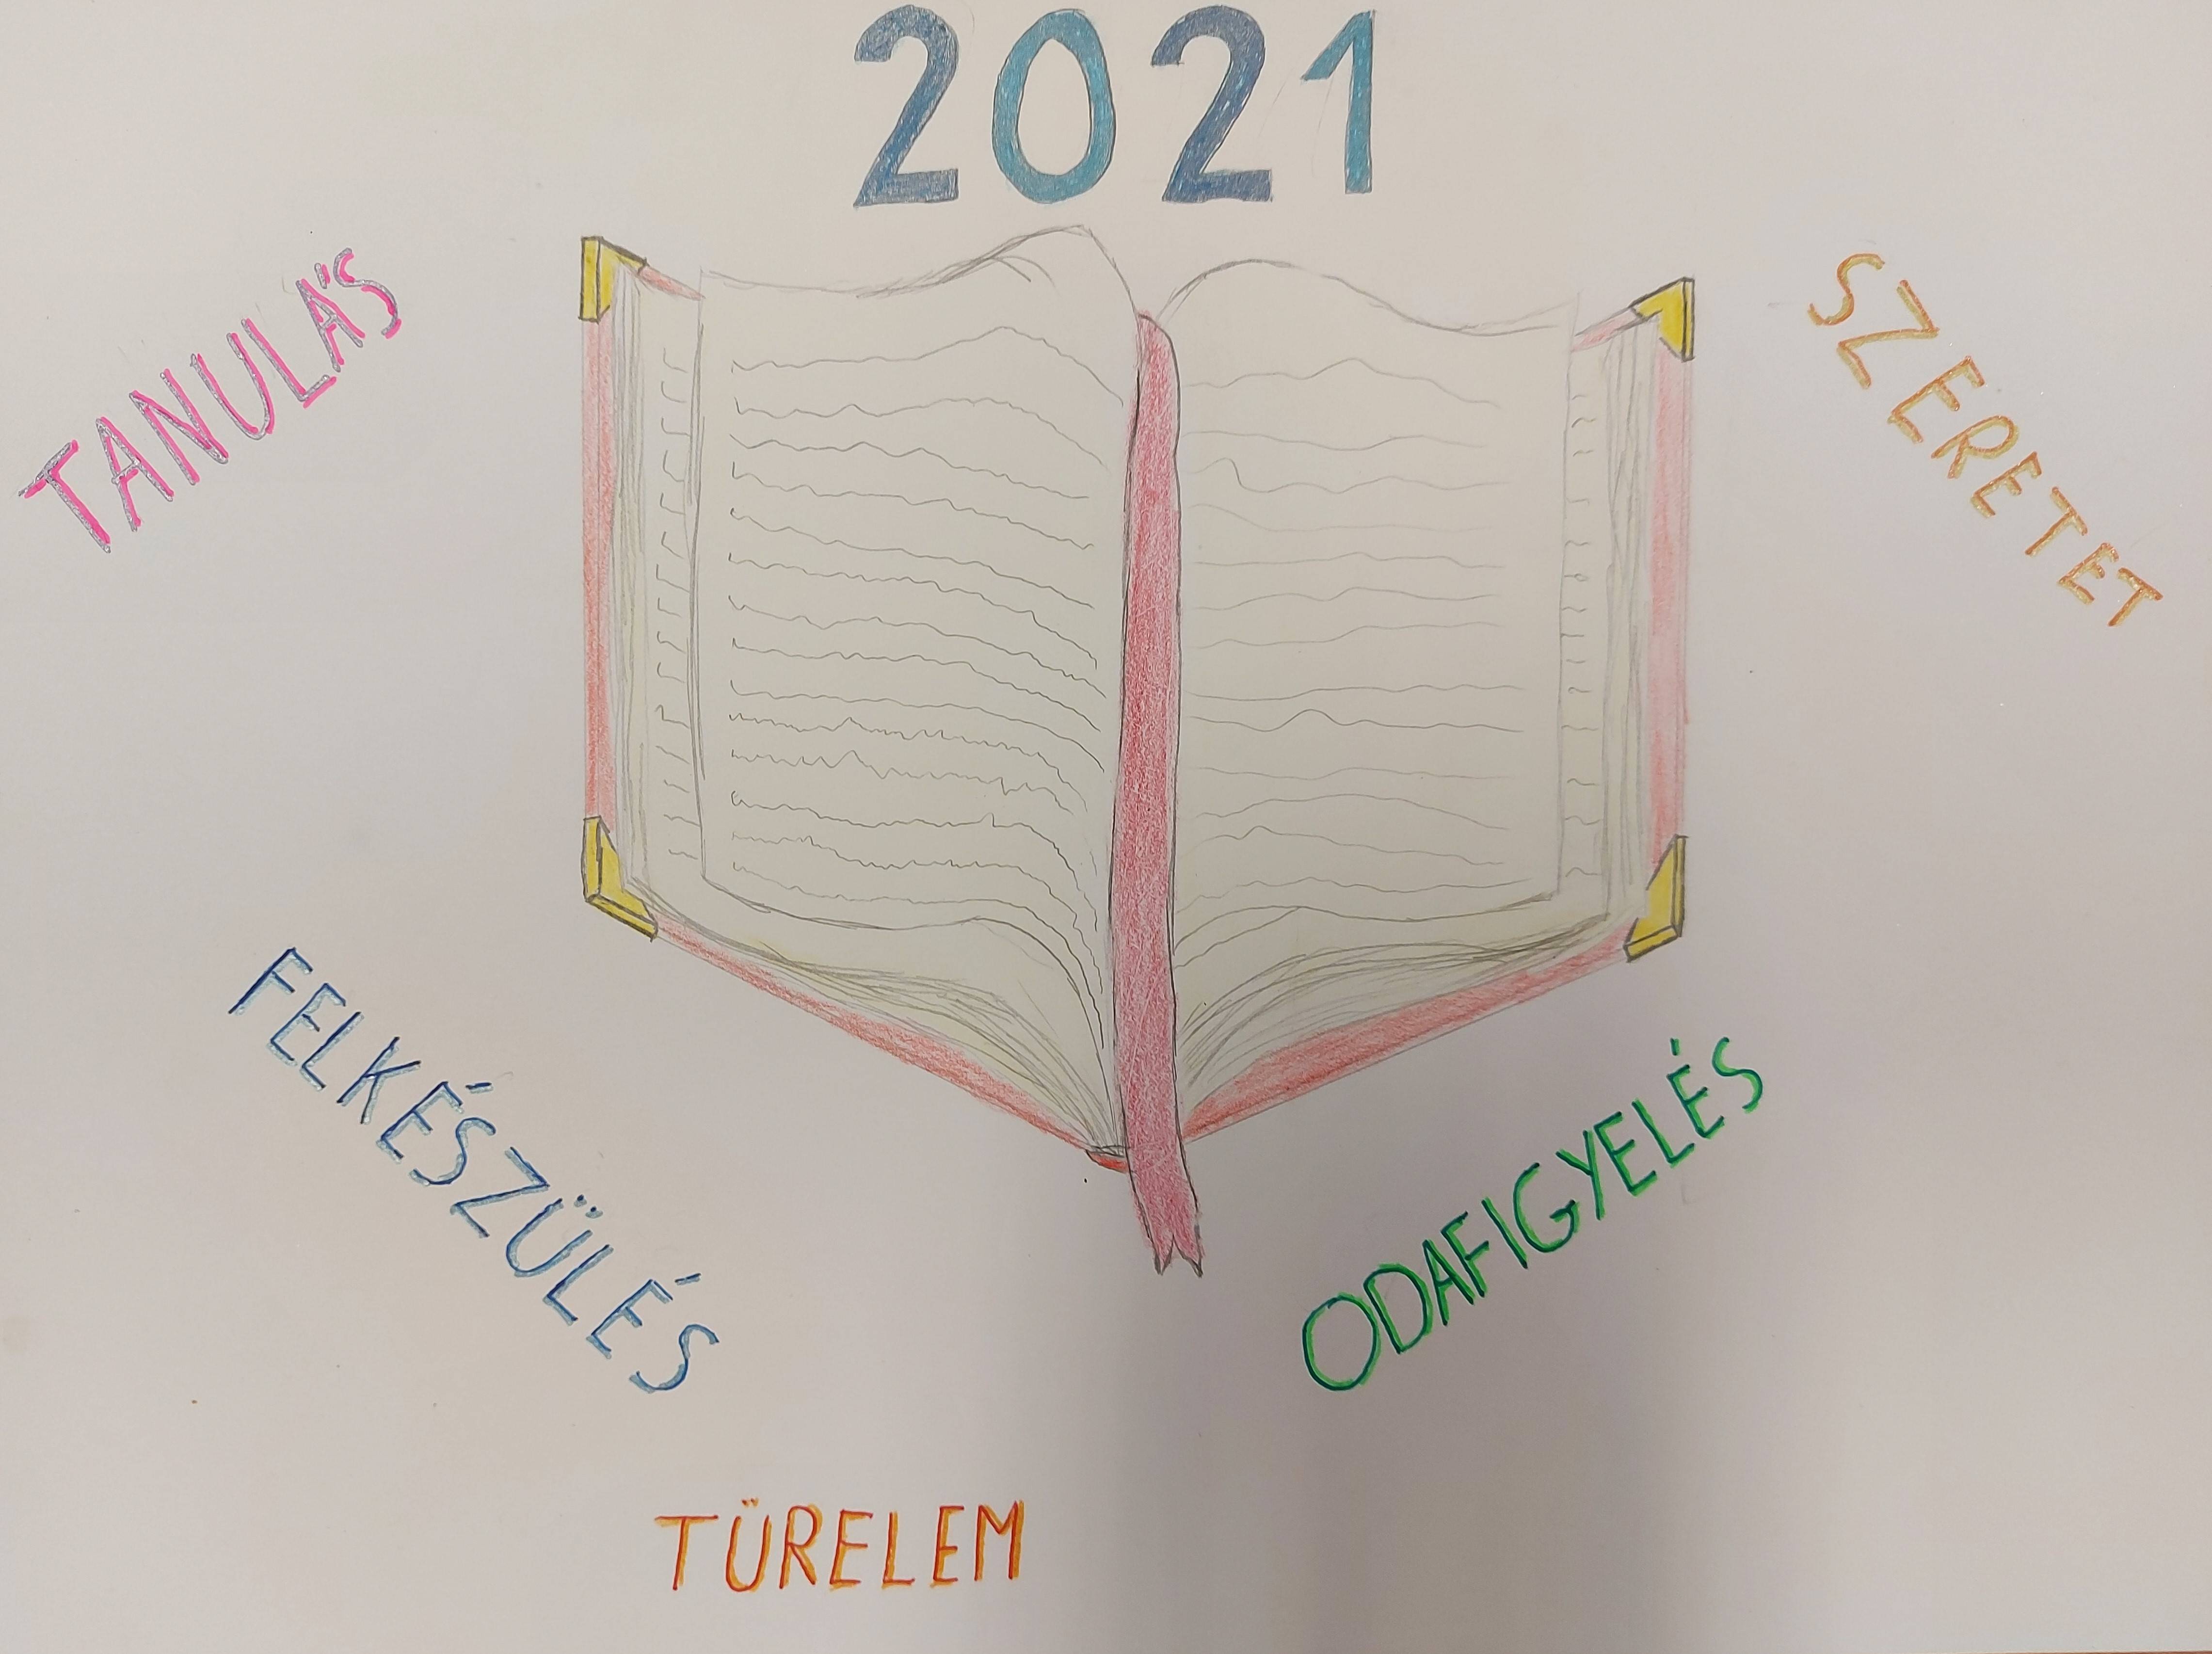 2021
TANULÁS
SZERETET
FELKÉSZÜLÉS
ODAFIGYELÉS
TÜRELEM